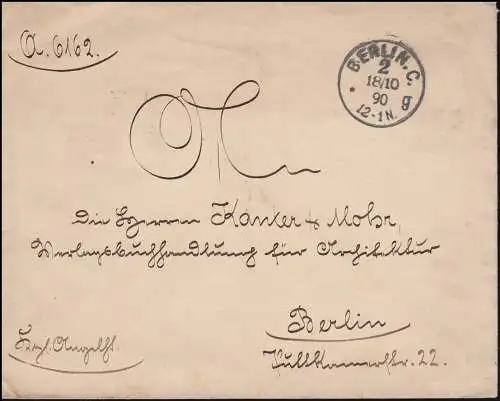 A. 6162.
BERLIN. C.
2
18/10
90
12-1N.
g
An
die Herren Kanter & Mohr,
Verlagsbuchhandlung für Architektur
Berlin
Puttkamerstr. 22.